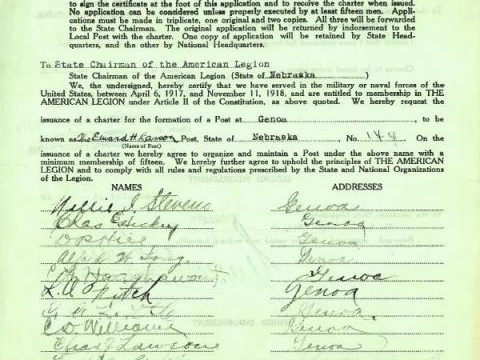 to sign the certificate at the foot of this application and to receive the charter when issued.
No application can be considered unless properly executed by at least fifteen men. Appli-
cations must be made in triplicate, one original and two copies. All three will be forwarded
to the State Chairman. The original will be returned by indorsement to the
Local Post with the charter. One copy of application will be retained by State Head-
quarters, and the other by National Headquarters.
To State Chairman of the American Legion
State Chairman of the American Legion (State of Nebraska)
We, the undersigned, hereby certify that we have served in the military or naval forces of the
United States, between April 6, 1917, and November 11, 1918, and are entitled to membership in THE
AMERICAN LEGION under Article II of the Constitution, as above quoted. We hereby request the
issuance of a charter for the formation of a Post at Genoa, to be
known as The Edward H. Larson Post, State of Nebraska No. 144 On the
(Name of Post)
issuance of a charter we hereby agree to organize and maintain a Post under the above name with a
minimum membership of fifteen. We hereby further agree to uphold the principles of THE AMERICAN
LEGION and to comply with all rules and regulations prescribed by the State and National Organizations
of the Legion.
NAMES ADDRESSES
Willie J. Stevens Genoa
Chas Hickey Genoa
Genoa
Genoa
Genoa
L. A. Fitch Genoa
Genoa
C. D. Williams Genoa
Chas J. Lawson Genoa